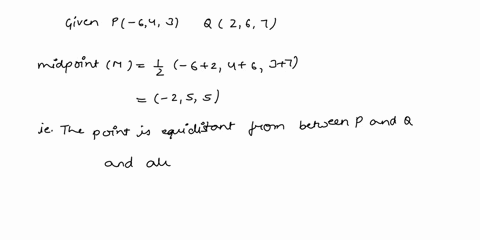 Given P(-6,4,3) Q(2,6,7)
midpoint (M) = 1/2 (-6+2, 4+6, 3+7)
= (-2, 5, 5)
ie. The point is equidistant from between P and Q
and all